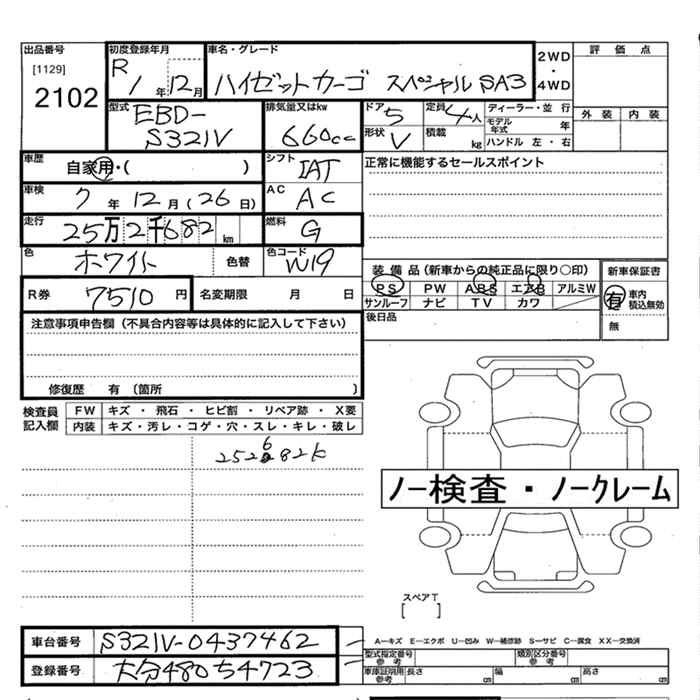 出品番号
[1129]
2102
初度登録年月
R 1年 12月
車名・グレード
ハイゼットカーゴ スペシャル SA3
2WD
・
4WD
評価点
外装 内装
型式
EBD-
S321V
排気量又はkw
660cc
ドア 5
定員 4人
形状 V
積載 kg
ディーラー・並行
モデル年式 年
ハンドル 左・右
車歴
自家用・( )
シフト
IAT
正常に機能するセールスポイント
車検
7年 12月 (26日)
AC
AC
走行
25万2千682 km
燃料
G
色
ホワイト
色替
色コード
W19
装備品(新車からの純正品に限り○印)
PS PW ABS エアB アルミW
サンルーフ ナビ TV カワ
新車保証書
有 車内積込無効
無
R券
7510円
名変期限 月 日
後日品
注意事項申告欄(不具合内容等は具体的に記入して下さい)
修復歴 有 (箇所 )
検査員記入欄
FW キズ・飛石・ヒビ割・リペア跡・X要
内装 キズ・汚レ・コゲ・穴・スレ・キレ・破レ
252682K
ノー検査・ノークレーム
スペアT
[ ]
A—キズ E—エクボ U—凹み W—補修跡 S—サビ C—腐食 XX—交換済
車台番号
S321V-0437462
型式指定番号 参考
類別区分番号 参考
登録番号
大分480 5 4723
車庫証明用 参考
長さ cm
幅 cm
高さ cm